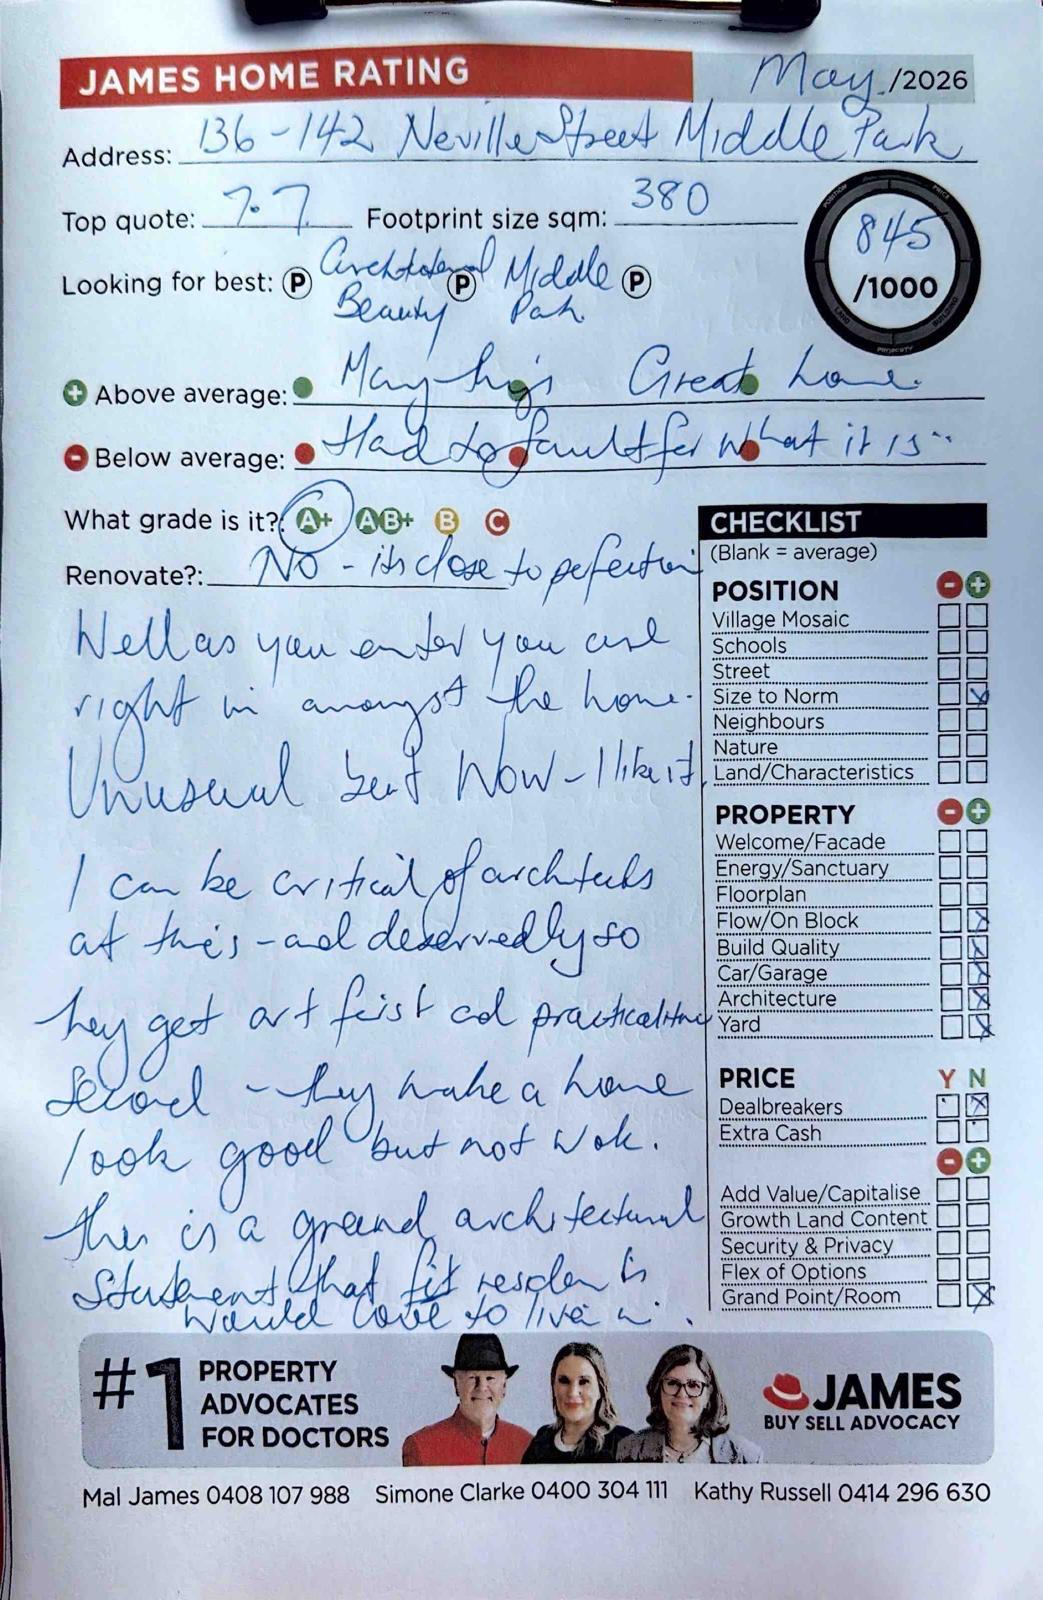 JAMES HOME RATING May /2026
Address: 136-142 Neville Street Middle Park
Top quote: 7.7 Footprint size sqm: 380
845
/1000
POSITION
PRICE
LAND
BUILDING
PROPERTY
Looking for best: P Architectural P Middle P
Beauty Park
Above average: Many things Great home
Below average: Hard to fault for what it is
What grade is it?: A+ AB+ B C
Renovate?: No - its close to perfection
Well as you enter you are
right in amongst the home.
Unusual but Wow - I like it
I can be critical of architects
at times - and deservedly so
they get art first and practicality
second - they make a home
look good but not work.
This is a grand architectural
statement that fit
would love to live in.
CHECKLIST
(Blank = average)
POSITION - +
Village Mosaic
Schools
Street
Size to Norm x
Neighbours
Nature
Land/Characteristics
PROPERTY - +
Welcome/Facade
Energy/Sanctuary
Floorplan
Flow/On Block x
Build Quality x
Car/Garage x
Architecture x
Yard x
PRICE Y N
Dealbreakers x
Extra Cash
- +
Add Value/Capitalise
Growth Land Content
Security & Privacy
Flex of Options
Grand Point/Room x
#1 PROPERTY
ADVOCATES
FOR DOCTORS
JAMES
BUY SELL ADVOCACY
Mal James 0408 107 988 Simone Clarke 0400 304 111 Kathy Russell 0414 296 630